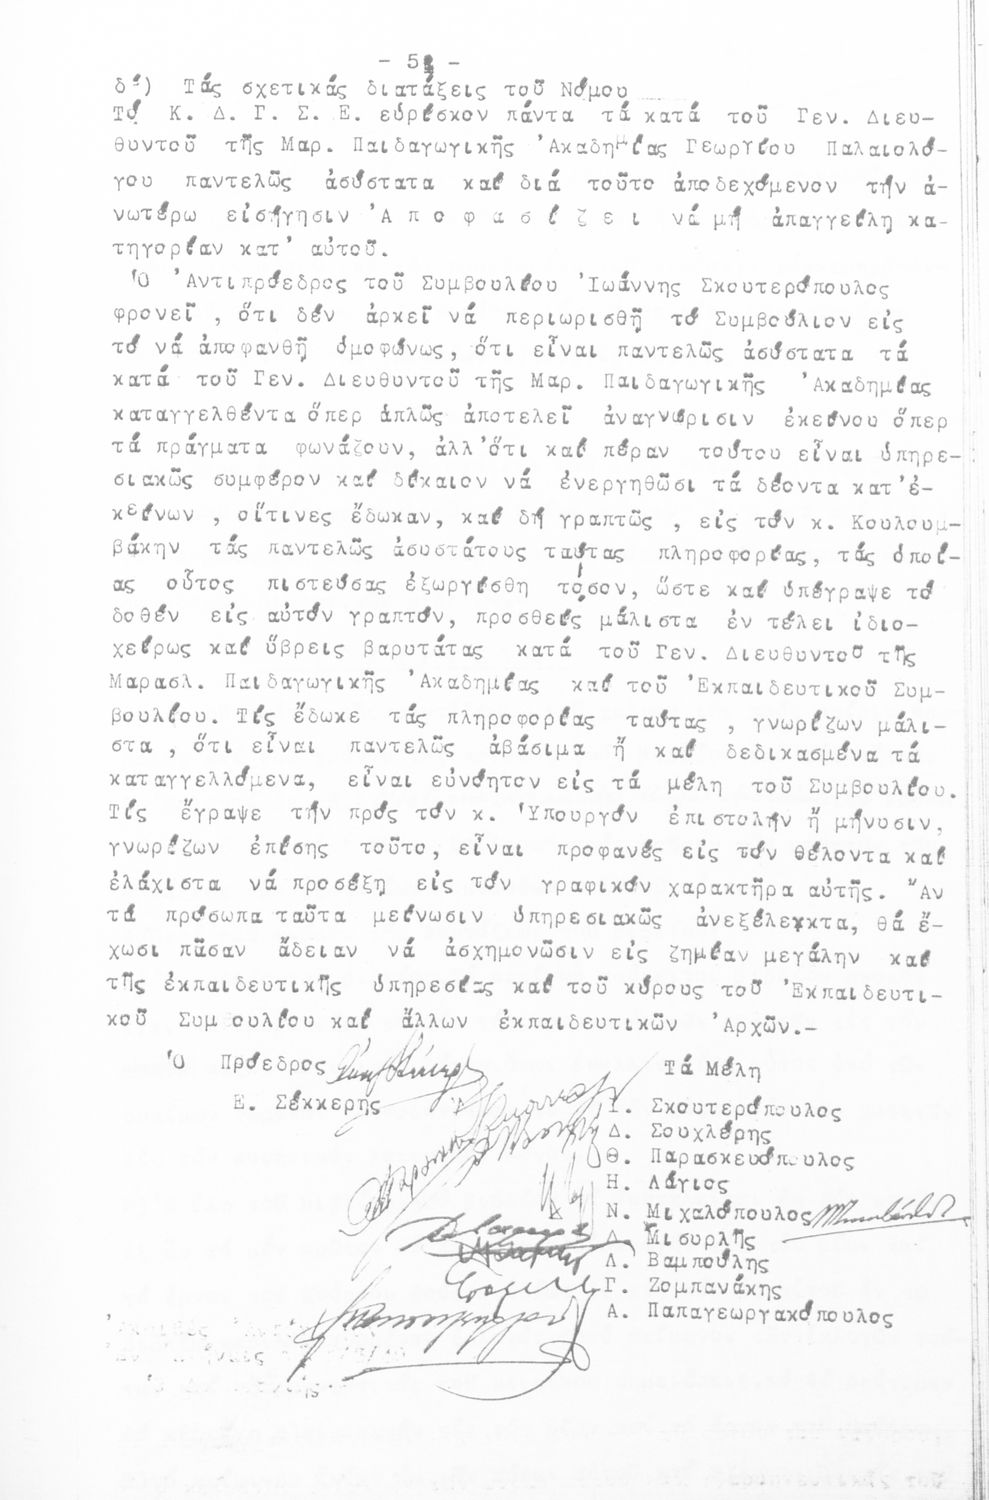 - 5 -
δ´) Τάς σχετικάς διατάξεις τοῦ Νόμου
Τό Κ. Δ. Γ. Σ. Ε. εὑρίσκον πάντα τά κατά τοῦ Γεν. Διευ-
θυντοῦ τῆς Μαρ. Παιδαγωγικῆς Ἀκαδημίας Γεωργίου Παλαιολό-
γου παντελῶς ἀσύστατα καί διά τοῦτο ἀποδεχόμενον τήν ἀ-
νωτέρω εἰσήγησιν Ἀ π ο φ α σ ί ζ ε ι νά μή ἀπαγγείλη κα-
τηγορίαν κατ' αὐτοῦ.
Ὁ Ἀντιπρόεδρος τοῦ Συμβουλίου Ἰωάννης Σκουτερόπουλος
φρονεῖ , ὅτι δέν ἀρκεῖ νά περιωρισθῆ τό Συμβούλιον εἰς
τό νά ἀποφανθῆ ὁμοφώνως, ὅτι εἶναι παντελῶς ἀσύστατα τά
κατά τοῦ Γεν. Διευθυντοῦ τῆς Μαρ. Παιδαγωγικῆς Ἀκαδημίας
καταγγελθέντα ὅπερ ἁπλῶς ἀποτελεῖ ἀναγνώρισιν ἐκείνου ὅπερ
τά πράγματα φωνάζουν, ἀλλ'ὅτι καί πέραν τούτου εἶναι ὑπηρε-
σιακῶς συμφέρον καί δίκαιον νά ἐνεργηθῶσι τά δέοντα κατ'ἐ-
κείνων , οἵτινες ἔδωκαν, καί δή γραπτῶς , εἰς τόν κ. Κουλουμ-
βάκην τάς παντελῶς ἀσυστάτους ταύτας πληροφορίας, τάς ὁποί-
ας οὗτος πιστεύσας ἐξωργίσθη τόσον, ὥστε καί ὑπέγραψε τό
δοθέν εἰς αὐτόν γραπτόν, προσθείς μάλιστα ἐν τέλει ἰδιο-
χείρως καί ὕβρεις βαρυτάτας κατά τοῦ Γεν. Διευθυντοῦ τῆς
Μαρασλ. Παιδαγωγικῆς Ἀκαδημίας καί τοῦ Ἐκπαιδευτικοῦ Συμ-
βουλίου. Τίς ἔδωκε τάς πληροφορίας ταύτας , γνωρίζων μάλι-
στα , ὅτι εἶναι παντελῶς ἀβάσιμα ἤ καί δεδικασμένα τά
καταγγελλόμενα, εἶναι εὐνόητον εἰς τά μέλη τοῦ Συμβουλίου.
Τίς ἔγραψε τήν πρός τόν κ. Ὑπουργόν ἐπιστολήν ἤ μήνυσιν,
γνωρίζων ἐπίσης τοῦτο, εἶναι προφανές εἰς τόν θέλοντα καί
ἐλάχιστα νά προσέξη εἰς τόν γραφικόν χαρακτῆρα αὐτῆς. Ἄν
τά πρόσωπα ταῦτα μείνωσιν ὑπηρεσιακῶς ἀνεξέλεγκτα, θά ἔ-
χωσι πᾶσαν ἄδειαν νά ἀσχημονῶσιν εἰς ζημίαν μεγάλην καί
τῆς ἐκπαιδευτικῆς ὑπηρεσίας καί τοῦ κύρους τοῦ Ἐκπαιδευτι-
κοῦ Συμ ουλίου καί ἄλλων ἐκπαιδευτικῶν Ἀρχῶν.-
Ὁ Πρόεδρος Τά Μέλη
Ε. Σέκκερης Ι. Σκουτερόπουλος
Δ. Σουχλέρης
Θ. Παρασκευόπουλος
Η. Λάγιος
Ν. Μιχαλόπουλος
Δ. Μισυρλῆς
Λ. Βαμπούλης
Γ. Ζομπανάκης
Α. Παπαγεωργακόπουλος